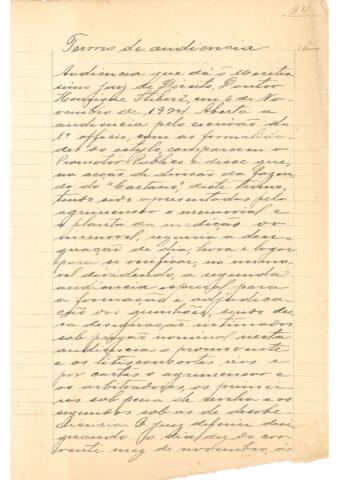 Termo de audiencia
Audiencia que dá o Meritis
simo juiz de Direito, Doutor
em 6 de No-
vembro de 1924. Aberta a
audiencia pelo escrivão do
1º officio, com as formalida-
des do estylo, compareceu o
Promotor Publico e disse que,
na acção de divisão da fazen-
da do "Caetano", deste termo,
tendo sido apresentados pelo
agrimensor o memorial e
a planta da medição do
immovel, requeria a desi-
gnação de dia, hora e logar
para se verificar, no immo-
vel dividendo, a segunda
audiencia especial para
a formação e adjudica-
ção dos quinhões, sendo des-
sa designação intimados
sob pregão nominal nesta
audiencia o promovente
e os litisconsortes réos e
por cartas o agrimensor e
os arbitradores, os primei-
ros sob pena de revelia e os
segundos sob as de desobe-
diencia. O juiz deferiu desi-
gnando o dia dez do cor-
rente mez de novembro, ás